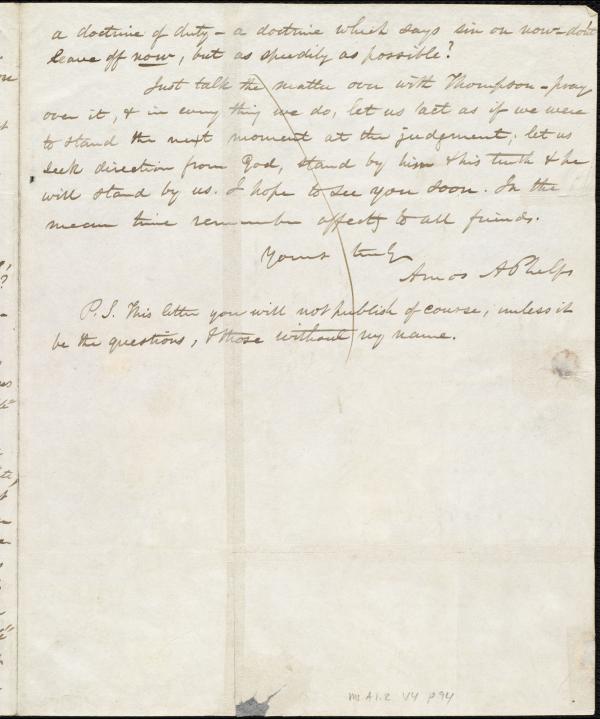 a doctrine of duty - a doctrine which says sin on now - don't
leave off now, but as speedily as possible?
Just talk the matter over with Thompson - pray
over it, & in every thing we do, let us act as if we were
to stand the next moment at the judgment; let us
seek direction from God, stand by him & his truth & he
will stand by us. I hope to see you soon. In the
mean time remember affecty to all friends.
Yours truly
Amos A Phelps
P.S. This letter you will not publish of course, unless it
be the questions, & those without my name.
Ms. A.1.2 V4 p94